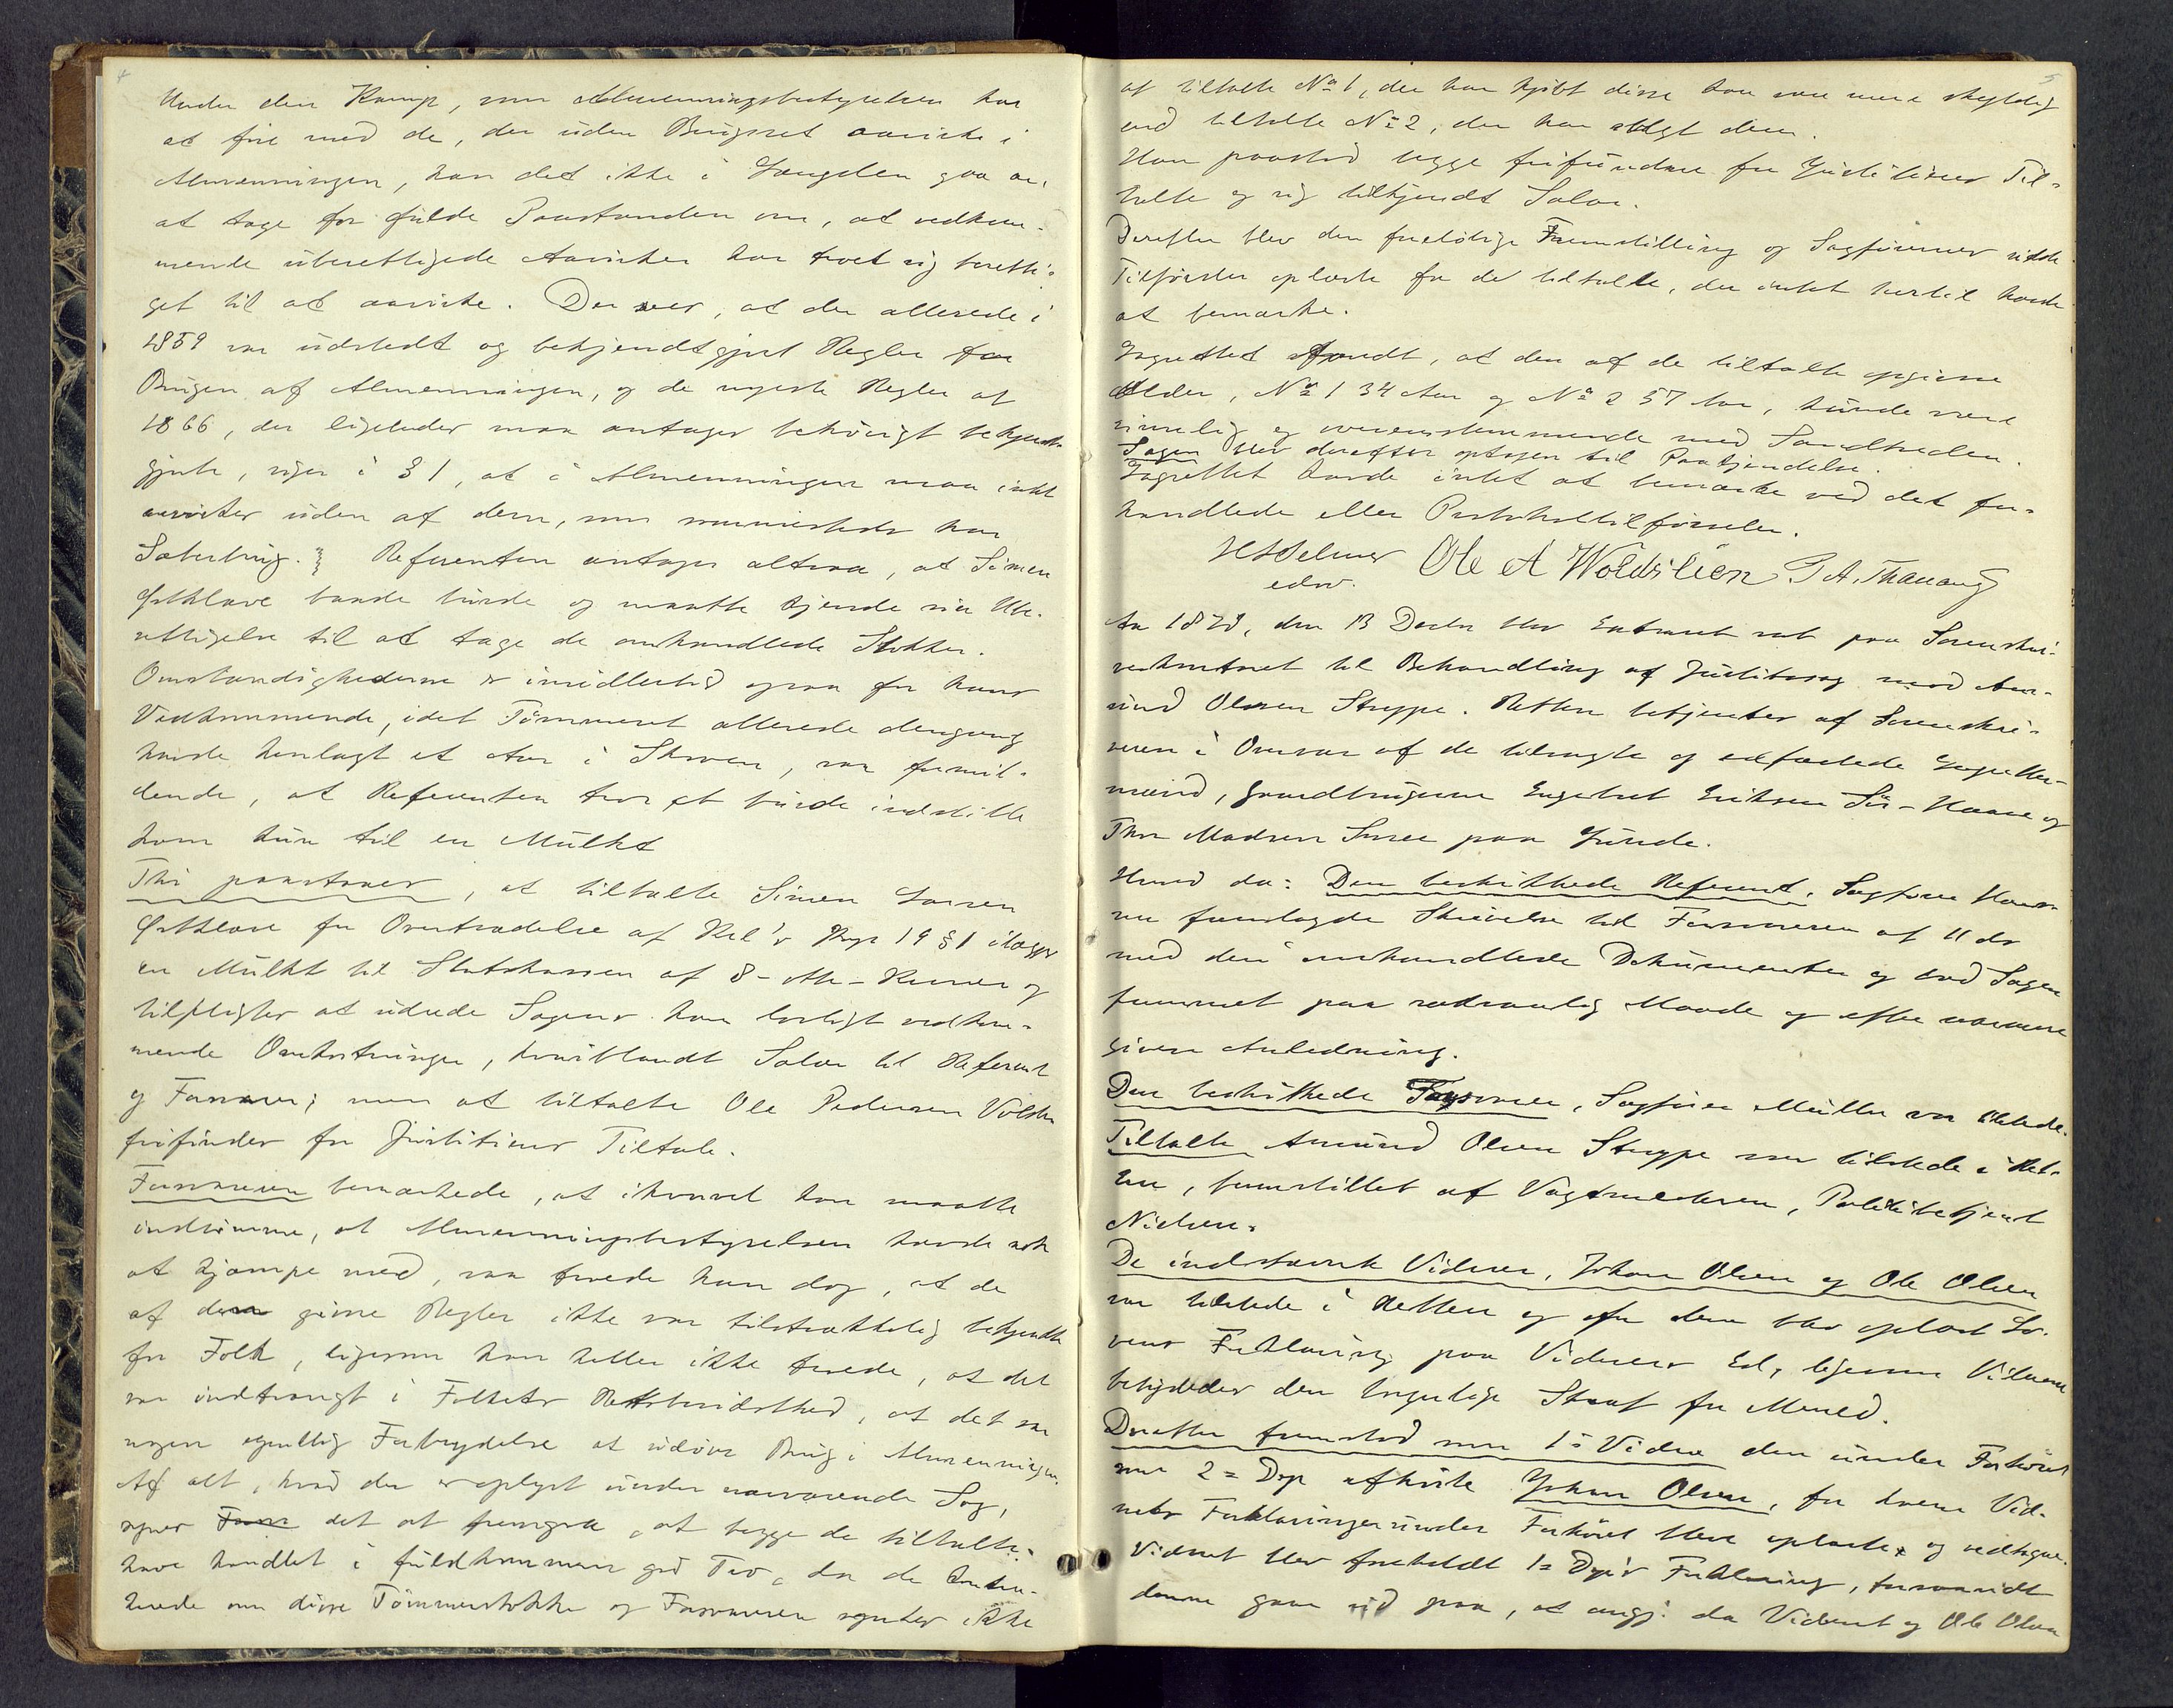 4
Under den Kamp, som Almenningsbestyrelsen har
at føre med de, der uden Brugsret aavirke i
Almenningen, kan det ikke i Længden gaa an,
at tage for Gulde Paastanden om, at vedkom-
mende uberettigede Aavirker har troet sig beretti-
get til at aavirke. Der sees, at der allerede i
1859 var udstedt og bekjendtgjort Regler for
Brugen af Almenningen, og de nyeste Regler af
1866, der ligeledes maa antages behørigt bekjendt-
gjorte, siger i § 1, at i Almenningen maa intet
aavirkes uden af dem, som sammesteds har
Sæterbrug. Referenten antager altsaa, at Simen
Østklove baade burde og maatte kjende sin Ube-
rettigelse til at tage de omhandlede Stokker.
Omstændighederne er imidlertid ogsaa for hans
Vedkommende, idet Tømmeret allerede dengang
havde henlagt et Aar i Skoven, saa formil-
dende, at Referenten tror at burde indstille
ham kun til en Mulkt
Thi paastaaes, at tiltalte Simen Larsen
Østklove for Overtrædelse af Krl's Kap 19 § 1 ilægges
en Mulkt til Statskassen af 8 - otte - Kroner og
tilpligtes at udrede Sagens ham lovligt vedkom-
mende Omkostninger, hvoriblandt Salær til Referent
og Forsvarer; men at tiltalte Ole Pedersen Volden
frifindes for Justitiens Tiltale.
Forsvareren bemærkede, at ihvorvel han maatte
indrømme, at Almenningsbestyrelsen havde nok
at kjæmpe med, saa troede han dog, at de
af den givne Regler ikke var tilstrækkelig bekjendte
for Folk, ligesom han heller ikke troede, at det
var indtrængt i Folkets Retsbevidsthed, at det var
nogen egentlig Forbrydelse at udøve Brug i Almenningen.
Af alt, hvad der er oplyst under nærværende Sag,
synes det at fremgaa, at begge de tiltalte
have handlet i fuldkommen god Tro, da de
om disse Tømmerstokke og Forsvareren synter ikke
5
at tiltalte No 1, der har kjøbt disse kan være mere skyldig
end tiltalte No 2, der har solgt dem.
Han paastod begge frifundne for Justitiens Til-
talte og sig tilkjendt Salær.
Derefter blev den foreløbige Fremstilling og Sagførernes
Tilførsler oplæste for de tiltalte, der intet hertil havde
at bemærke.
Lagrettet fandt, at den af de tiltalte opgivne
Alder, No 1 34 Aar og No 2 57 Aar, kunde være
rimelig og overensstemmende med Sandheden.
Sagen blev derefter optagen til Paakjendelse.
Lagrettet havde intet at bemærke ved det for-
handlede eller Protokoltilførselen.
Ole A Woldslien
edsv.
Aar 1878, den 13 Decbr blev Extraret sat paa Sorenskri-
verkontoret til Behandling af Justitssag mod Am-
und Olsen Struppe. Retten betjentes af Sorenskri-
veren i Overvær af de tilsagte og edfæstede Lagrettes-
mænd, Gaardbrugerne Engebret Eriksen og
Thor Madsen
Hvad da: Den beskikkede Referent, Sagfører
fremlagde Skrivelse til Forsvareren af 11 ds
med de i omhandlede Dokumenter og bad Sagen
fremmet paa sædvanlig Maade og efter nærmere
given Anledning.
Den beskikkede Forsvarer, Sagfører Müller var tilstede.
Tiltalte Amund Olsen Struppe var tilstede i Ret-
ten, fremstillet af Vagtmesteren, Politibetjent
Nielsen.
De indstævnte Vidner, Johan Olsen og Ole Olsen
var tilstede i Retten og for dem blev oplæst Lo-
vens Forklaring paa Vidners Ed, ligesom Vidnerne
betydedes den borgerlige Straf for Mened.
Derefter fremstod som 1ste Vidne den under Forhøret
som 2det Dep afhørte Johan Olsen, for hvem Vid-
nets Forklaringer under Forhøret bleve oplæste og vedtagne.
Vidnet blev foreholdt 1ste Dep's Forklaring, forsaavidt
denne gaar ud paa, at da Vidnet og Ole Olsen